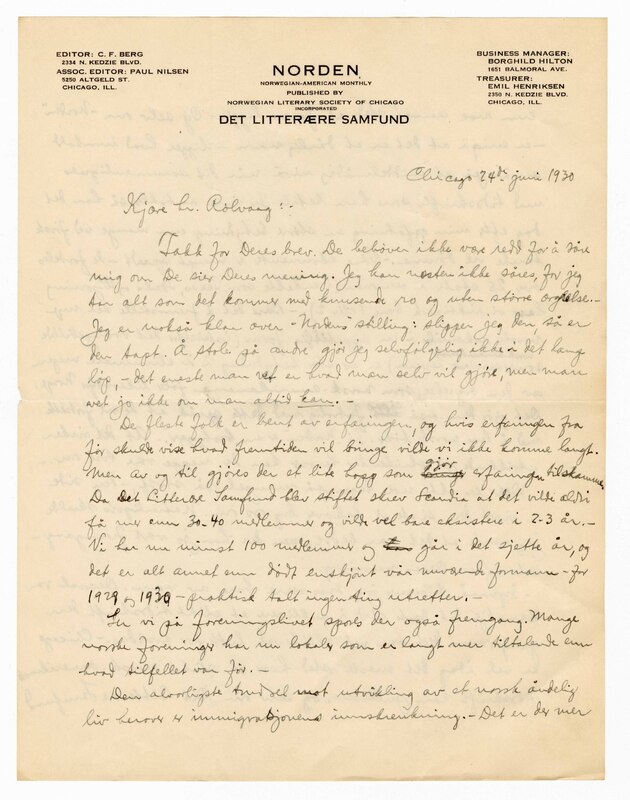 EDITOR: C. F. BERG
2334 N. KEDZIE BLVD.
ASSOC. EDITOR: PAUL NILSEN
5250 ALTGELD ST.
CHICAGO, ILL.
NORDEN
NORWEGIAN-AMERICAN MONTHLY
PUBLISHED BY
NORWEGIAN LITERARY SOCIETY OF CHICAGO
INCORPORATED
DET LITTERÆRE SAMFUND
BUSINESS MANAGER:
BORGHILD HILTON
1651 BALMORAL AVE.
TREASURER:
EMIL HENRIKSEN
2350 N. KEDZIE BLVD.
CHICAGO, ILL.
Chicago 24de juni 1930
Kjære hr. Rölvaag:-
Takk for Deres brev. De behöver ikke være redd for å såre
mig om De sier Deres mening. Jeg kan næsten ikke såres, for jeg
tar alt som det kommer med knusende ro og uten större ærgrelse.-
Jeg er nokså klar over "Nordens" stilling: slipper jeg den, så er
den tapt. Å stole på andre gjör jeg selvfölgelig ikke i det lange
löp, - det eneste man vet er hvad man selv vil gjöre, men man
vet jo ikke om man altid kan. -
De fleste folk er bent av erfaringen, og hvis erfaringen fra
för skulde vise hvad fremtiden vil bringe vilde vi ikke komme langt.
Men av og til gjöres der et lite hopp som gjör erfaringen tilskamme
Da Det Litterære Samfund blev stiftet skrev Scandia at det vilde aldri
få mer enn 30-40 medlemmer og vilde vel bare eksistere i 2-3 år.-
Vi har nu minst 100 medlemmer og går i det sjette år, og
det er alt annet enn dödt enskjönt vår nuværende formann - for
1929 og 1930 - praktisk talt ingenting utretter. -
Ser vi på foreningslivet spores der også fremgang. Mange
norske foreninger har nu lokaler som er langt mer tiltalende enn
hvad tilfellet var för. -
Den alvorligste trudsel mot utvikling av et norsk åndelig
liv herover er immigrasjonens innskrenkning. - Det er der mer